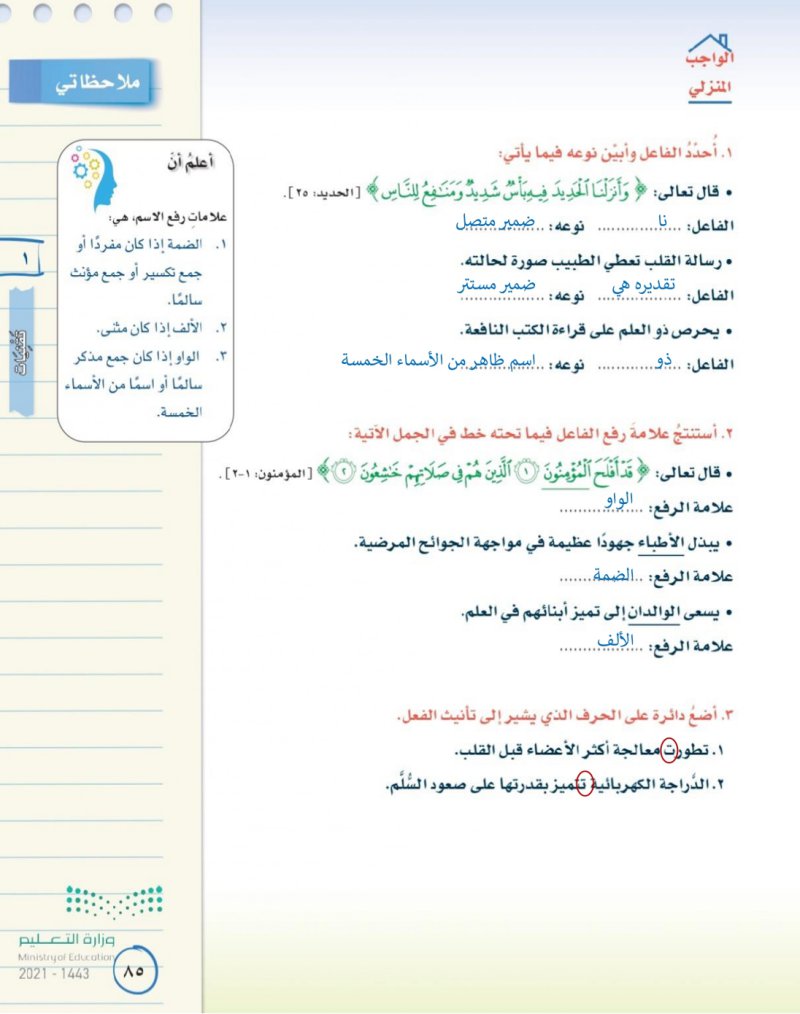 الواجب
المنزلي
ملاحظاتي
١. أُحدّدُ الفاعل وأبيّن نوعه فيما يأتي:
• قال تعالى: ﴿ وَأَنزَلْنَا ٱلْحَدِيدَ فِيهِ بَأْسٌ شَدِيدٌ وَمَنَٰفِعُ لِلنَّاسِ ﴾ [الحديد: ٢٥].
الفاعل: نا نوعه: ضمير متصل
• رسالة القلب تعطي الطبيب صورة لحالته.
الفاعل: تقديره هي نوعه: ضمير مستتر
• يحرص ذو العلم على قراءة الكتب النافعة.
الفاعل: ذو نوعه: اسم ظاهر من الأسماء الخمسة
٢. أستنتجُ علامةَ رفع الفاعل فيما تحته خط في الجمل الآتية:
• قال تعالى: ﴿ قَدْ أَفْلَحَ ٱلْمُؤْمِنُونَ ١ ٱلَّذِينَ هُمْ فِي صَلَاتِهِمْ خَٰشِعُونَ ٢ ﴾ [المؤمنون: ١-٢].
علامة الرفع: الواو
• يبذل الأطباء جهودًا عظيمة في مواجهة الجوائح المرضية.
علامة الرفع: الضمة
• يسعى الوالدان إلى تميز أبنائهم في العلم.
علامة الرفع: الألف
٣. أضعُ دائرة على الحرف الذي يشير إلى تأنيث الفعل.
١. تطورت معالجة أكثر الأعضاء قبل القلب.
٢. الدَّراجة الكهربائية تتميز بقدرتها على صعود السُّلَّم.
أعلمُ أنَ
علاماتِ رفع الاسم، هي:
١. الضمة إذا كان مفردًا أو
جمع تكسير أو جمع مؤنث
سالمًا.
٢. الألف إذا كان مثنى.
٣. الواو إذا كان جمع مذكر
سالمًا أو اسمًا من الأسماء
الخمسة.
١
وزارة التعليم
Ministry of Education
2021 - 1443
٨٥